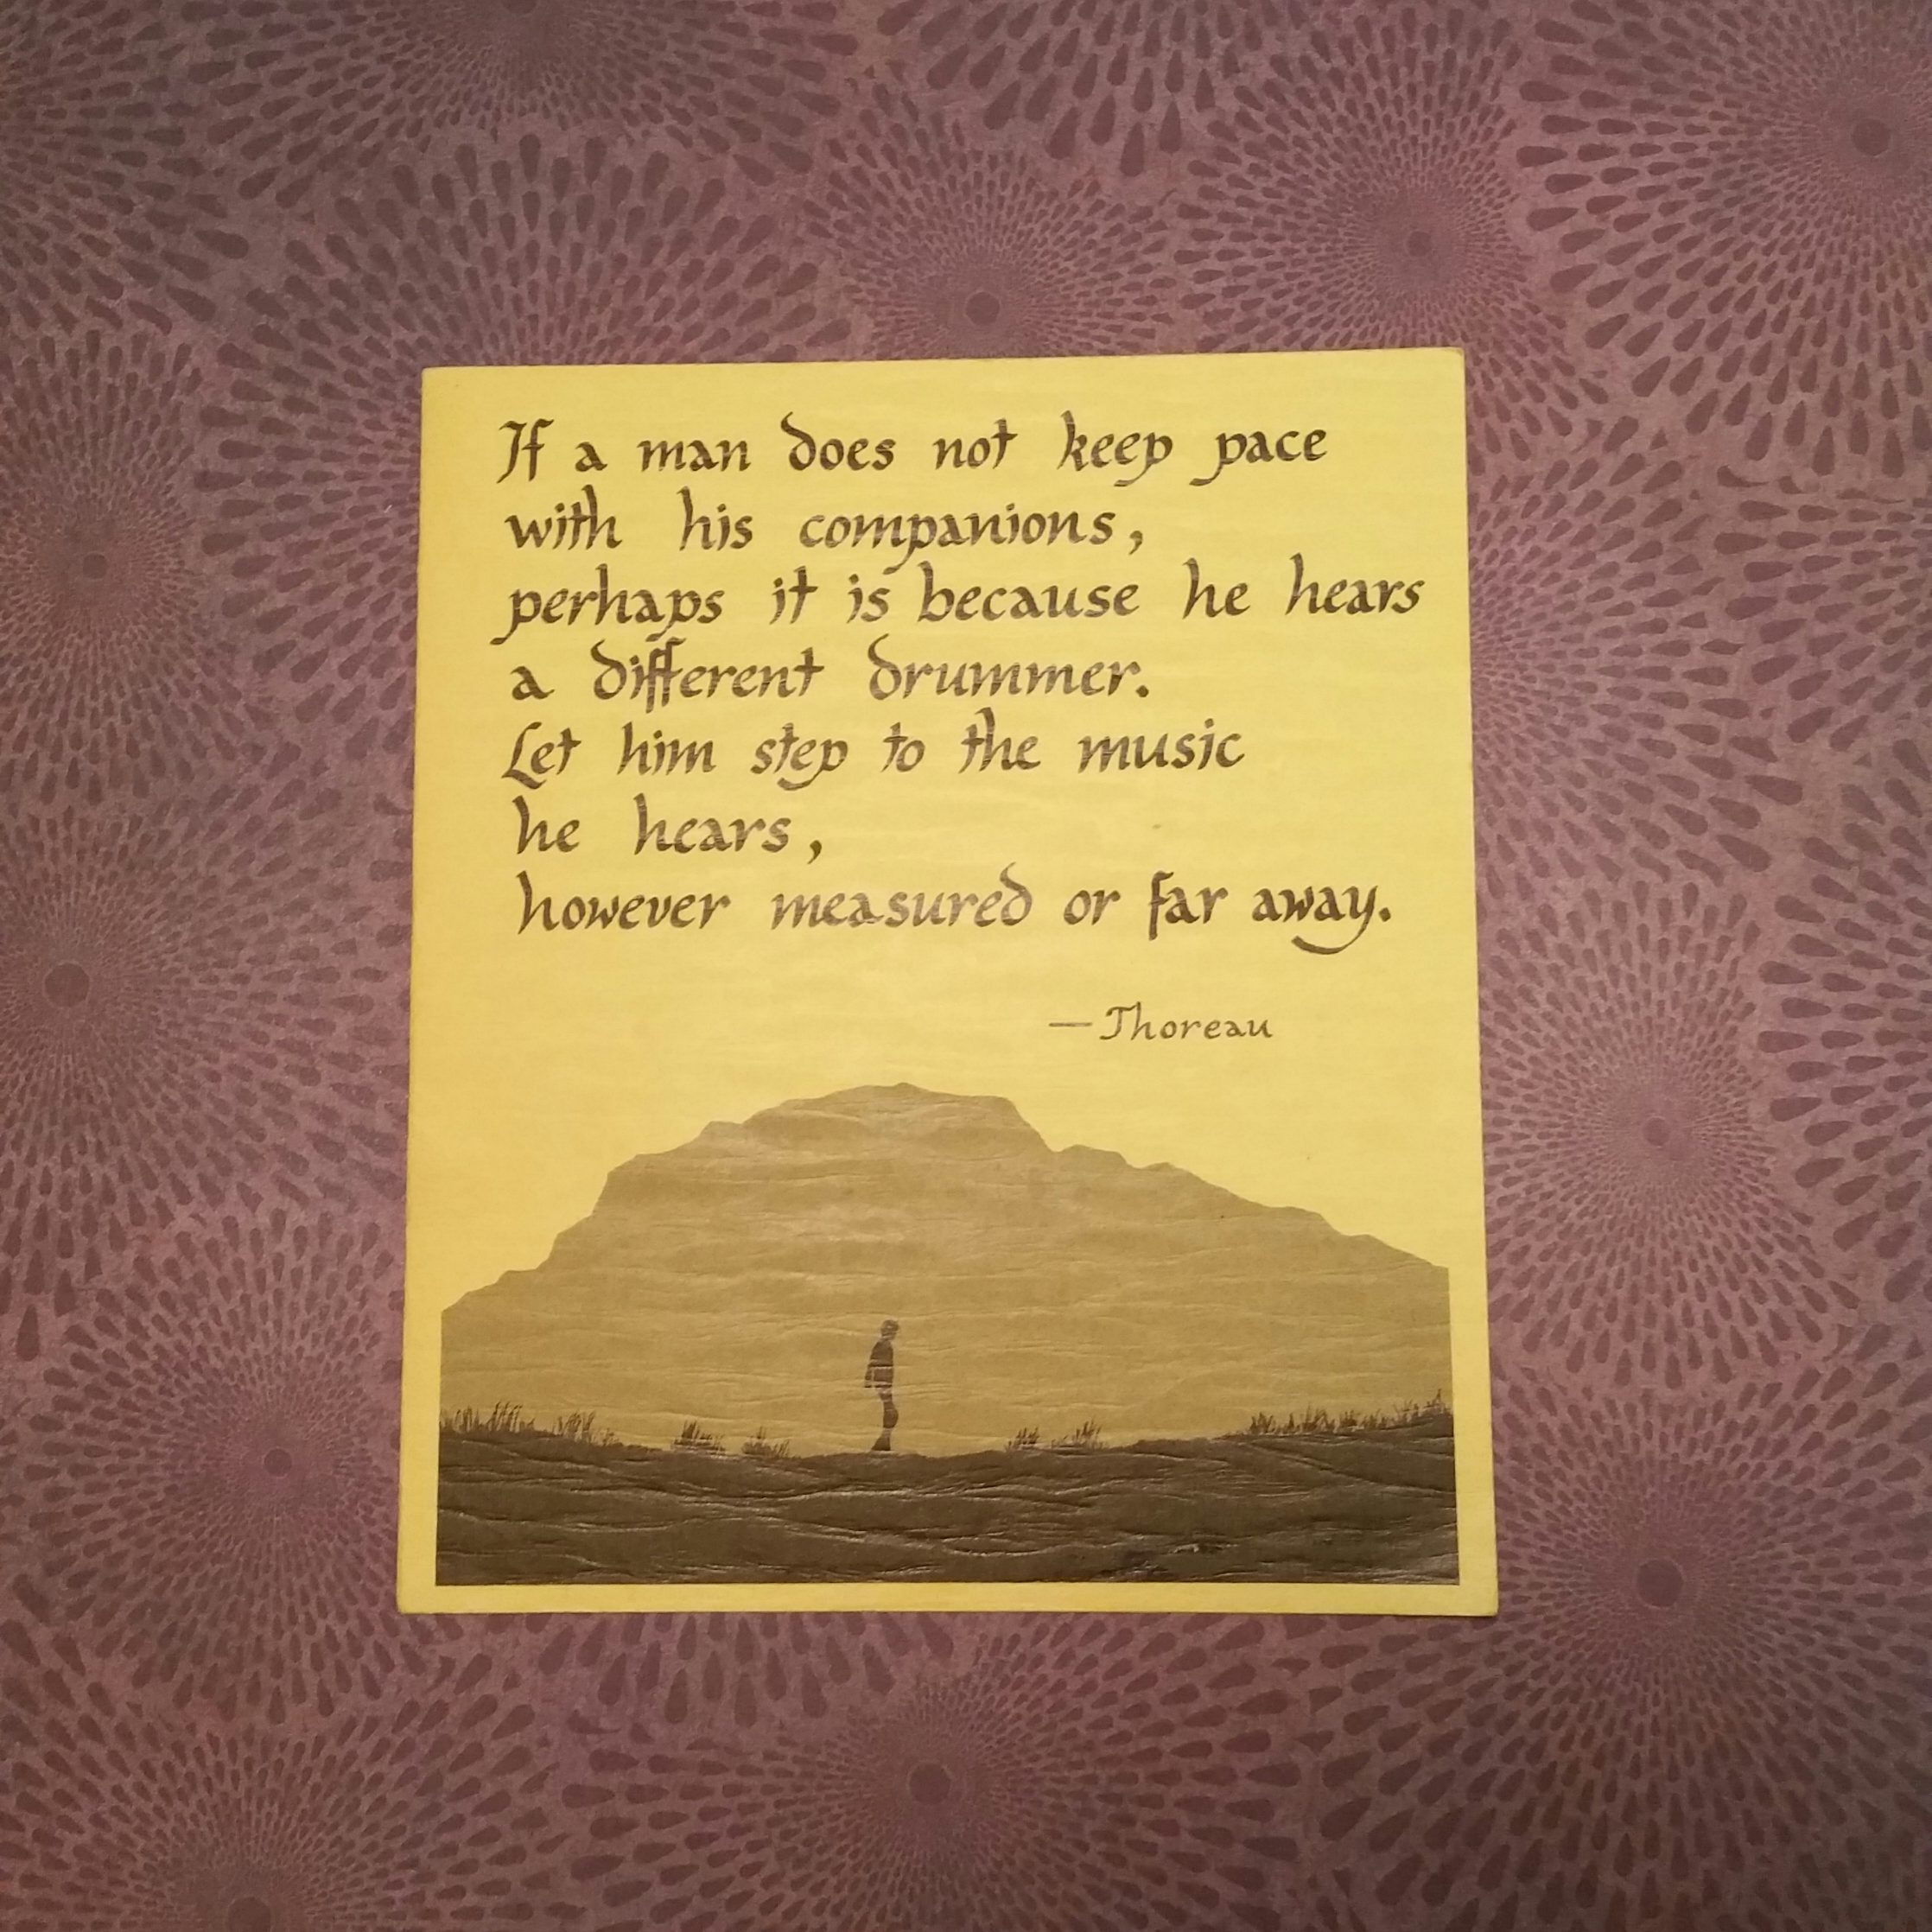 If a man does not keep pace
with his companions,
perhaps it is because he hears
a different drummer.
Let him step to the music
he hears,
however measured or far away.
— Thoreau